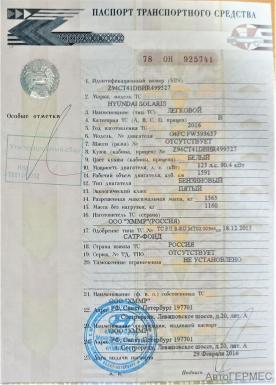 ПАСПОРТ ТРАНСПОРТНОГО СРЕДСТВА
78 ОН 925741
1. Идентификационный номер (VIN) Z94CT41DBHR499527
2. Марка, модель ТС HYUNDAI SOLARIS
3. Наименование (тип ТС) ЛЕГКОВОЙ
Особые отметки
4. Категория ТС (А, В, С, D, прицеп) B
5. Год изготовления ТС 2016
6. Модель, № двигателя G4FC
7. Шасси (рама) № ОТСУТСТВУЕТ
8. Кузов (кабина, прицеп) № Z94CT41DBHR499527
9. Цвет кузова (кабины, прицепа) БЕЛЫЙ
10. Мощность двигателя, л.с. (кВт) 123 л.с. 90.4 кВт
11. Рабочий объем двигателя, куб. см 1591
12. Тип двигателя БЕНЗИНОВЫЙ
13. Экологический класс ПЯТЫЙ
14. Разрешенная максимальная масса, кг 1565
15. Масса без нагрузки, кг 1160
16. Изготовитель ТС (страна)
ООО "ХММР"(РОССИЯ)
17. Одобрение типа ТС №
САТР-ФОНД
18. Страна вывоза ТС РОССИЯ
19. Серия, № ТД, ТПО ОТСУТСТВУЕТ
20. Таможенные ограничения НЕ УСТАНОВЛЕНО
21. Наименование (ф. и. о.) собственника ТС
ООО "ХММР"
22. Адрес РФ, Санкт-Петербург 197701
Сестрорецк, Левашовское шоссе, д.20, лит. А
23. Наименование организации, выдавшей паспорт
ООО "ХММР"
24. Адрес РФ, Санкт-Петербург 197701
Сестрорецк, Левашовское шоссе, д.20, лит. А
25. Дата выдачи паспорта 29 Февраля 2016
М.П. Подпись
АвтоГЕРМЕС